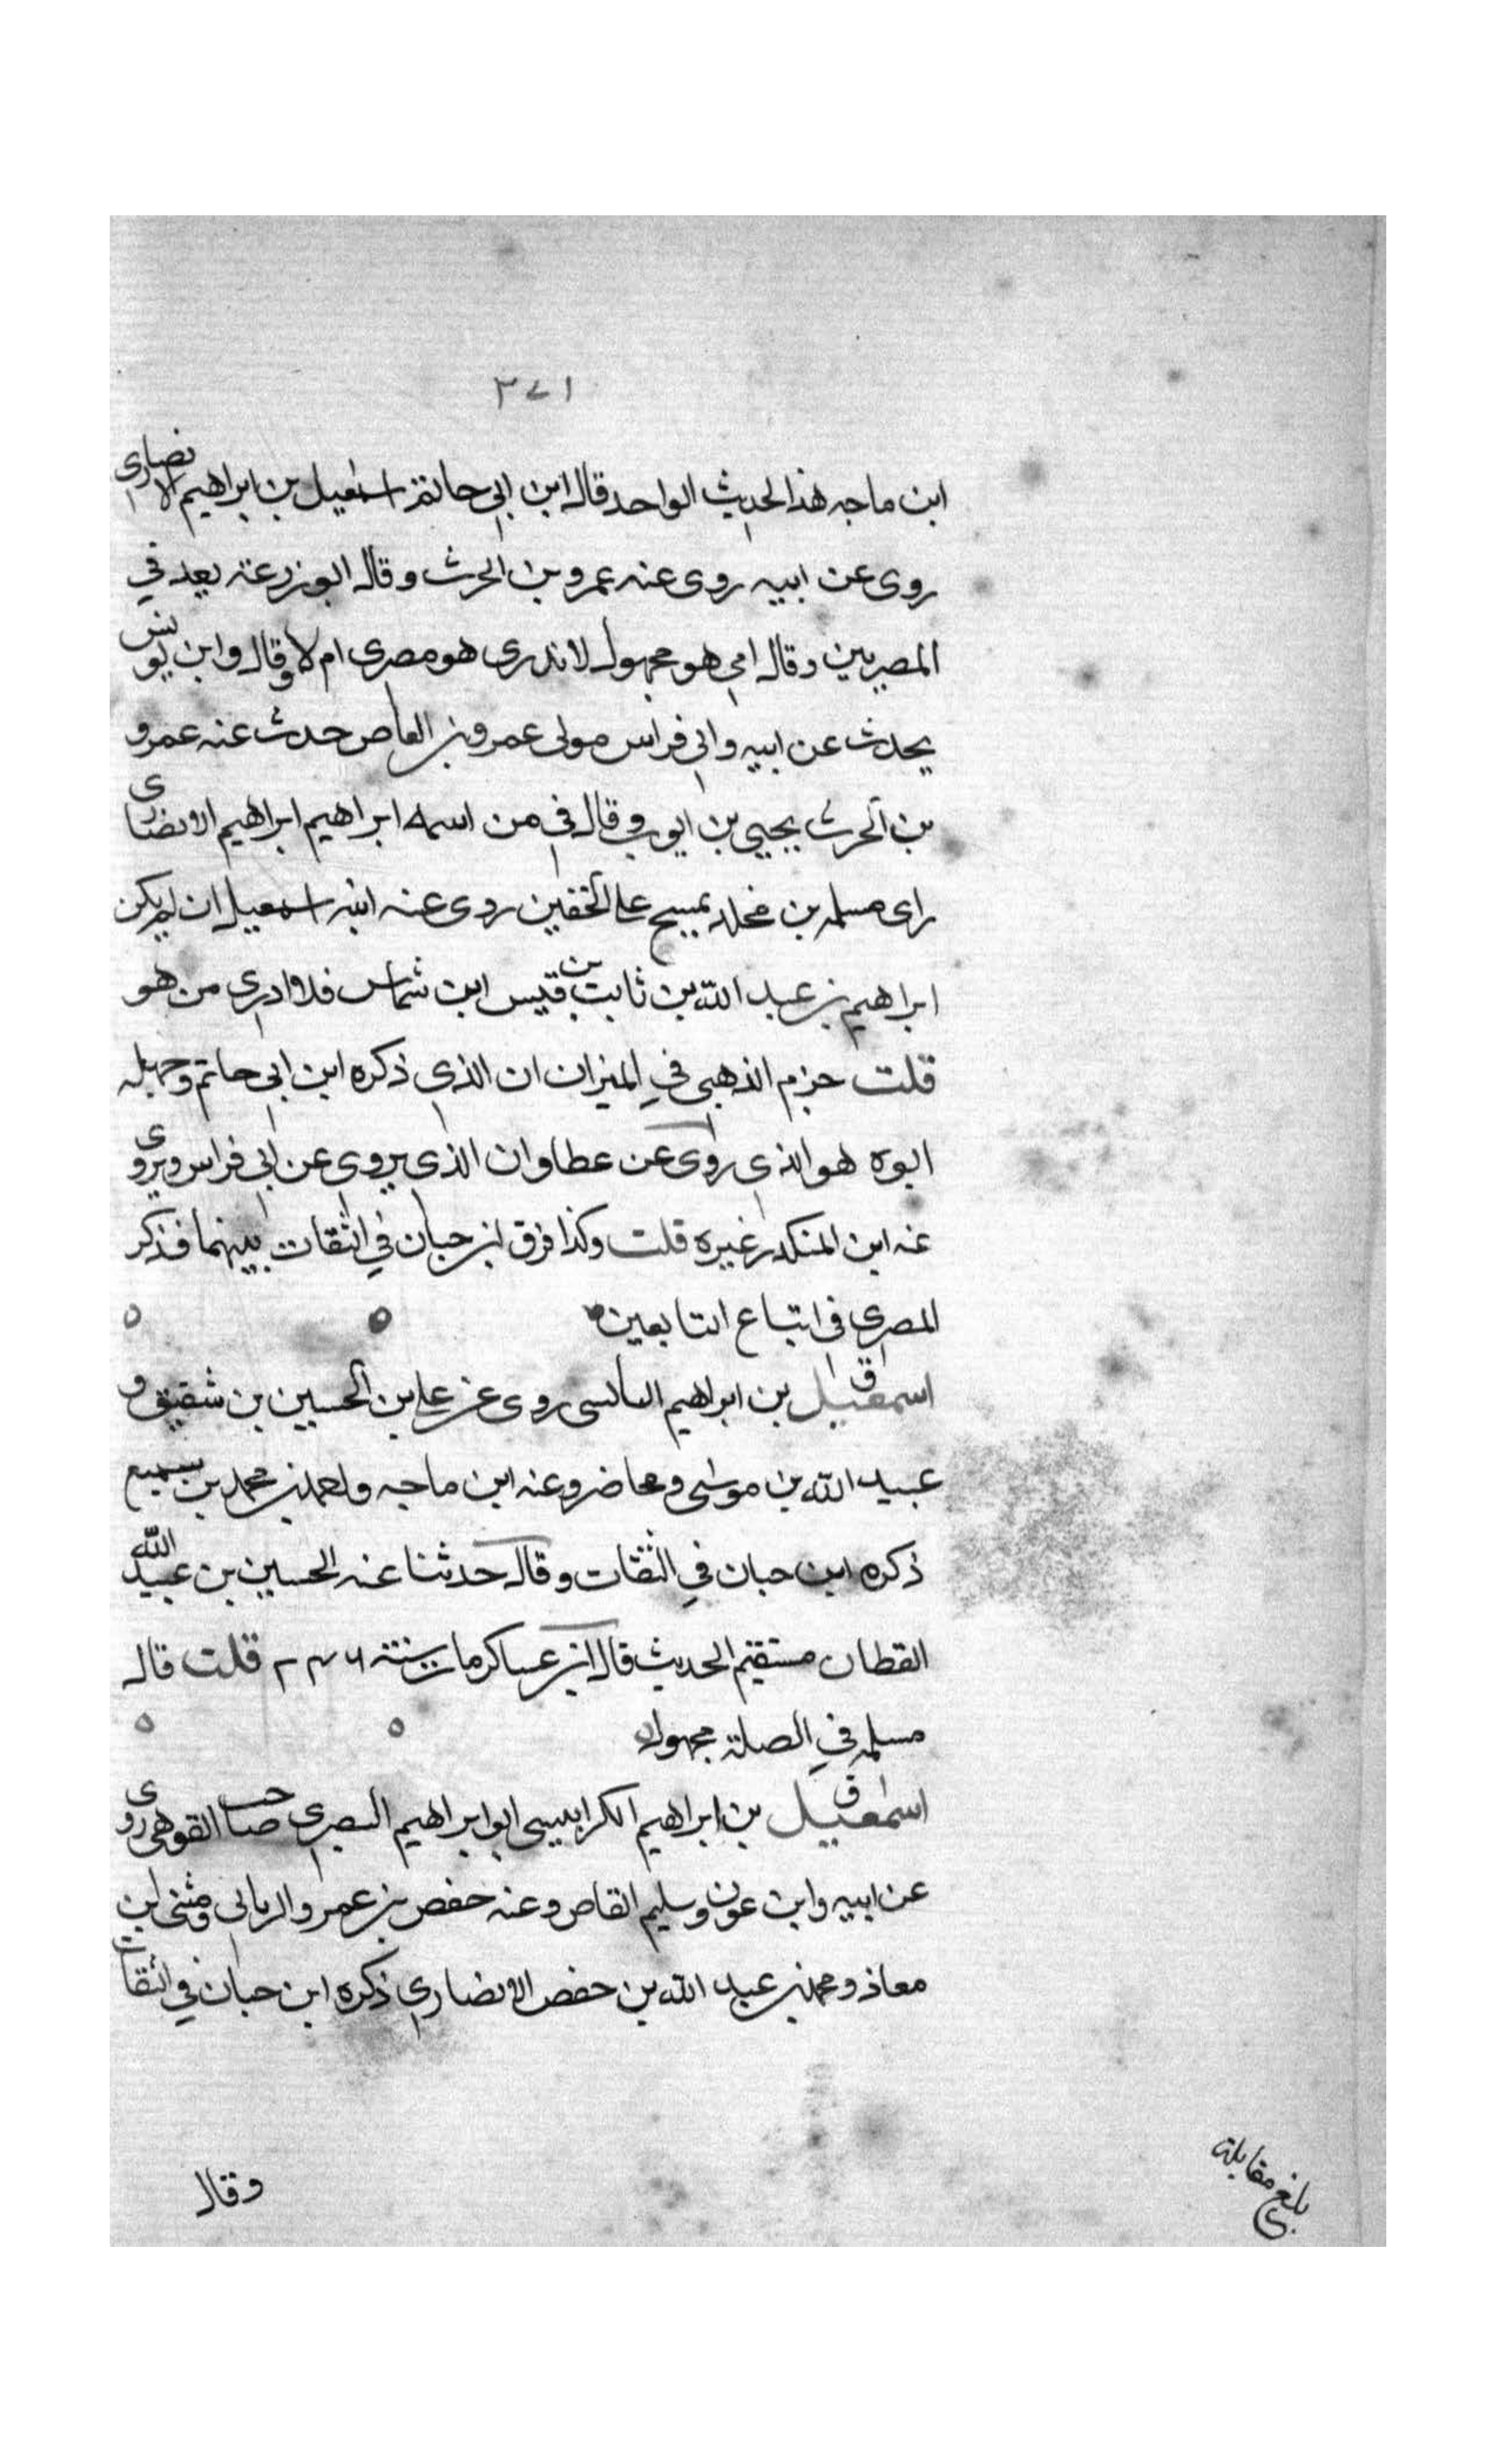 ٣٧١
ابن ماجه هذا الحديث الواحد قال ابن ابى حاتم اسمعيل بن ابراهيم الانصارى
روى عن ابيه روى عنه عمرو بن الحرث وقال ابو زرعة يعد في
المصريين وقال ابي هو مجهول لا ندرى هو مصرى ام لا وقال وابن يونس
يحدث عن ابيه وابي فراس مولى عمرو بن العاص حدث عنه عمرو
بن الحرث يحيى بن ايوب وقال في من اسمه ابراهيم ابراهيم الانصارى
راى مسلمه بن مخلد يمسح على الخفين روى عنه ابنه اسمعيل ان لم يكن
ابراهيم بن عبد الله بن ثابت بن قيس ابن شماس فلا ادرى من هو
قلت جزم الذهبى في الميزان ان الذي ذكره ابن ابى حاتم وجهله
ابوه هو الذى روى عن عطا وان الذى يروى عن ابى فراس ويروى
عنه ابن المنكدر غيره قلت وكذا فرق ابن حبان في الثقات بينهما فذكر
المصرى فى اتباع التابعين
ق
اسمعيل بن ابراهيم البالسى روى عن على بن الحسين بن شقيق و
عبيد الله بن موسى ومحاضر وعنه ابن ماجه واحمد بن محمد بن سميع
ذكره ابن حبان في الثقات وقال حدثنا عنه الحسين بن عبيد الله
القطان مستقيم الحديث قال ابن عساكر مات سنة ٢٤٦ قلت قال
مسلمه في الصلة مجهول
ق
اسمعيل بن ابراهيم الكرابيسى ابو ابراهيم البصرى صاحب القوهى روى
عن ابيه وابن عون وسليم القاص وعنه حفص بن عمرو الربالى ومثنى ابن
معاذ ومحمد بن عبد الله بن حفص الانصارى ذكره ابن حبان في الثقات
وقال
بلغ مقابلة